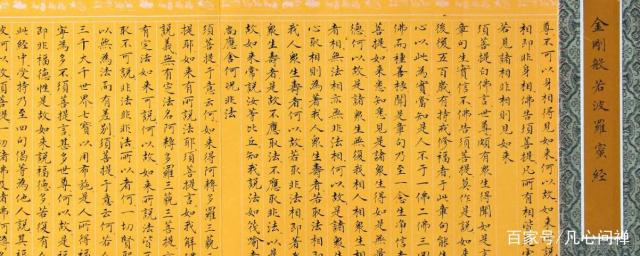 金剛般若波羅蜜経
尊不可以身相得見如來何以故如來
相即非身相佛告須菩提凡所有相
若見諸相非相則見如來
須菩提白佛言世尊頗有衆生得聞如是
章句生實信不佛告須菩提莫作是說如來
後後五百歲有持戒修福者于此章句能生
心以此為實當知是人不于一佛二佛三四
佛而種善根聞是章句乃至一念生淨信者
菩提如來悉知悉見是諸衆生得如是無量
德何以故是諸衆生無復我相人相衆生相
者相無法相亦無非法相何以故是諸衆生
心取相則為著我人衆生壽者若取法相即
我人衆生壽者何以故若取非法相即著我
衆生壽者是故不應取法不應取非法以是
故如來常說汝等比丘知我說法如筏喻者
尚應舍何況非法
須菩提于意云何如來得阿耨多羅三藐三
提耶如來有所說法耶須菩提言如我解佛
說義無有定法名阿耨多羅三藐三菩提亦
有定法如來可說何以故如來所說法皆
取不可說非法非非法所以者何一切賢聖
以無為法而有差別須菩提于意云何若
三千大千世界七寶以用布施是人所得福
寧為多不須菩提言甚多世尊何以故是
即非福德性是故如來說福德多若復有人
此經中受持乃至四句偈等為他人說其福
彼何以故須菩提一切諸佛及諸佛
百家号/凡心问禅